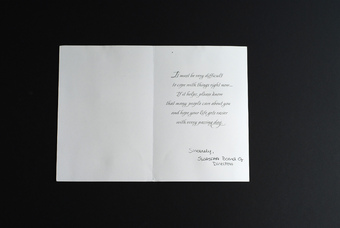 It must be very difficult
to cope with things right now...
If it helps, please know
that many people care about you
and hope your life gets easier
with every passing day.
Sincerely,
Director